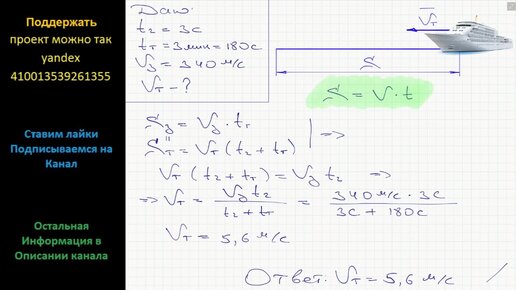 Поддержать
проект можно так
yandex
410013539261355
Ставим лайки
Подписываемся на
Канал
Остальная
Информация в
Описании канала
Дано:
t₂ = 3с
tт = 3мин = 180с
Vз = 340 м/с
Vт - ?
Vт
S
S = V · t
Sз = Vз · tт
Sт = Vт (t₂ + tт) | =>
Vт (t₂ + tт) = Vз t₂ =>
=> Vт = Vз t₂ / (t₂ + tт) = 340 м/с · 3с / (3с + 180с)
Vт = 5,6 м/с
Ответ: Vт = 5,6 м/с